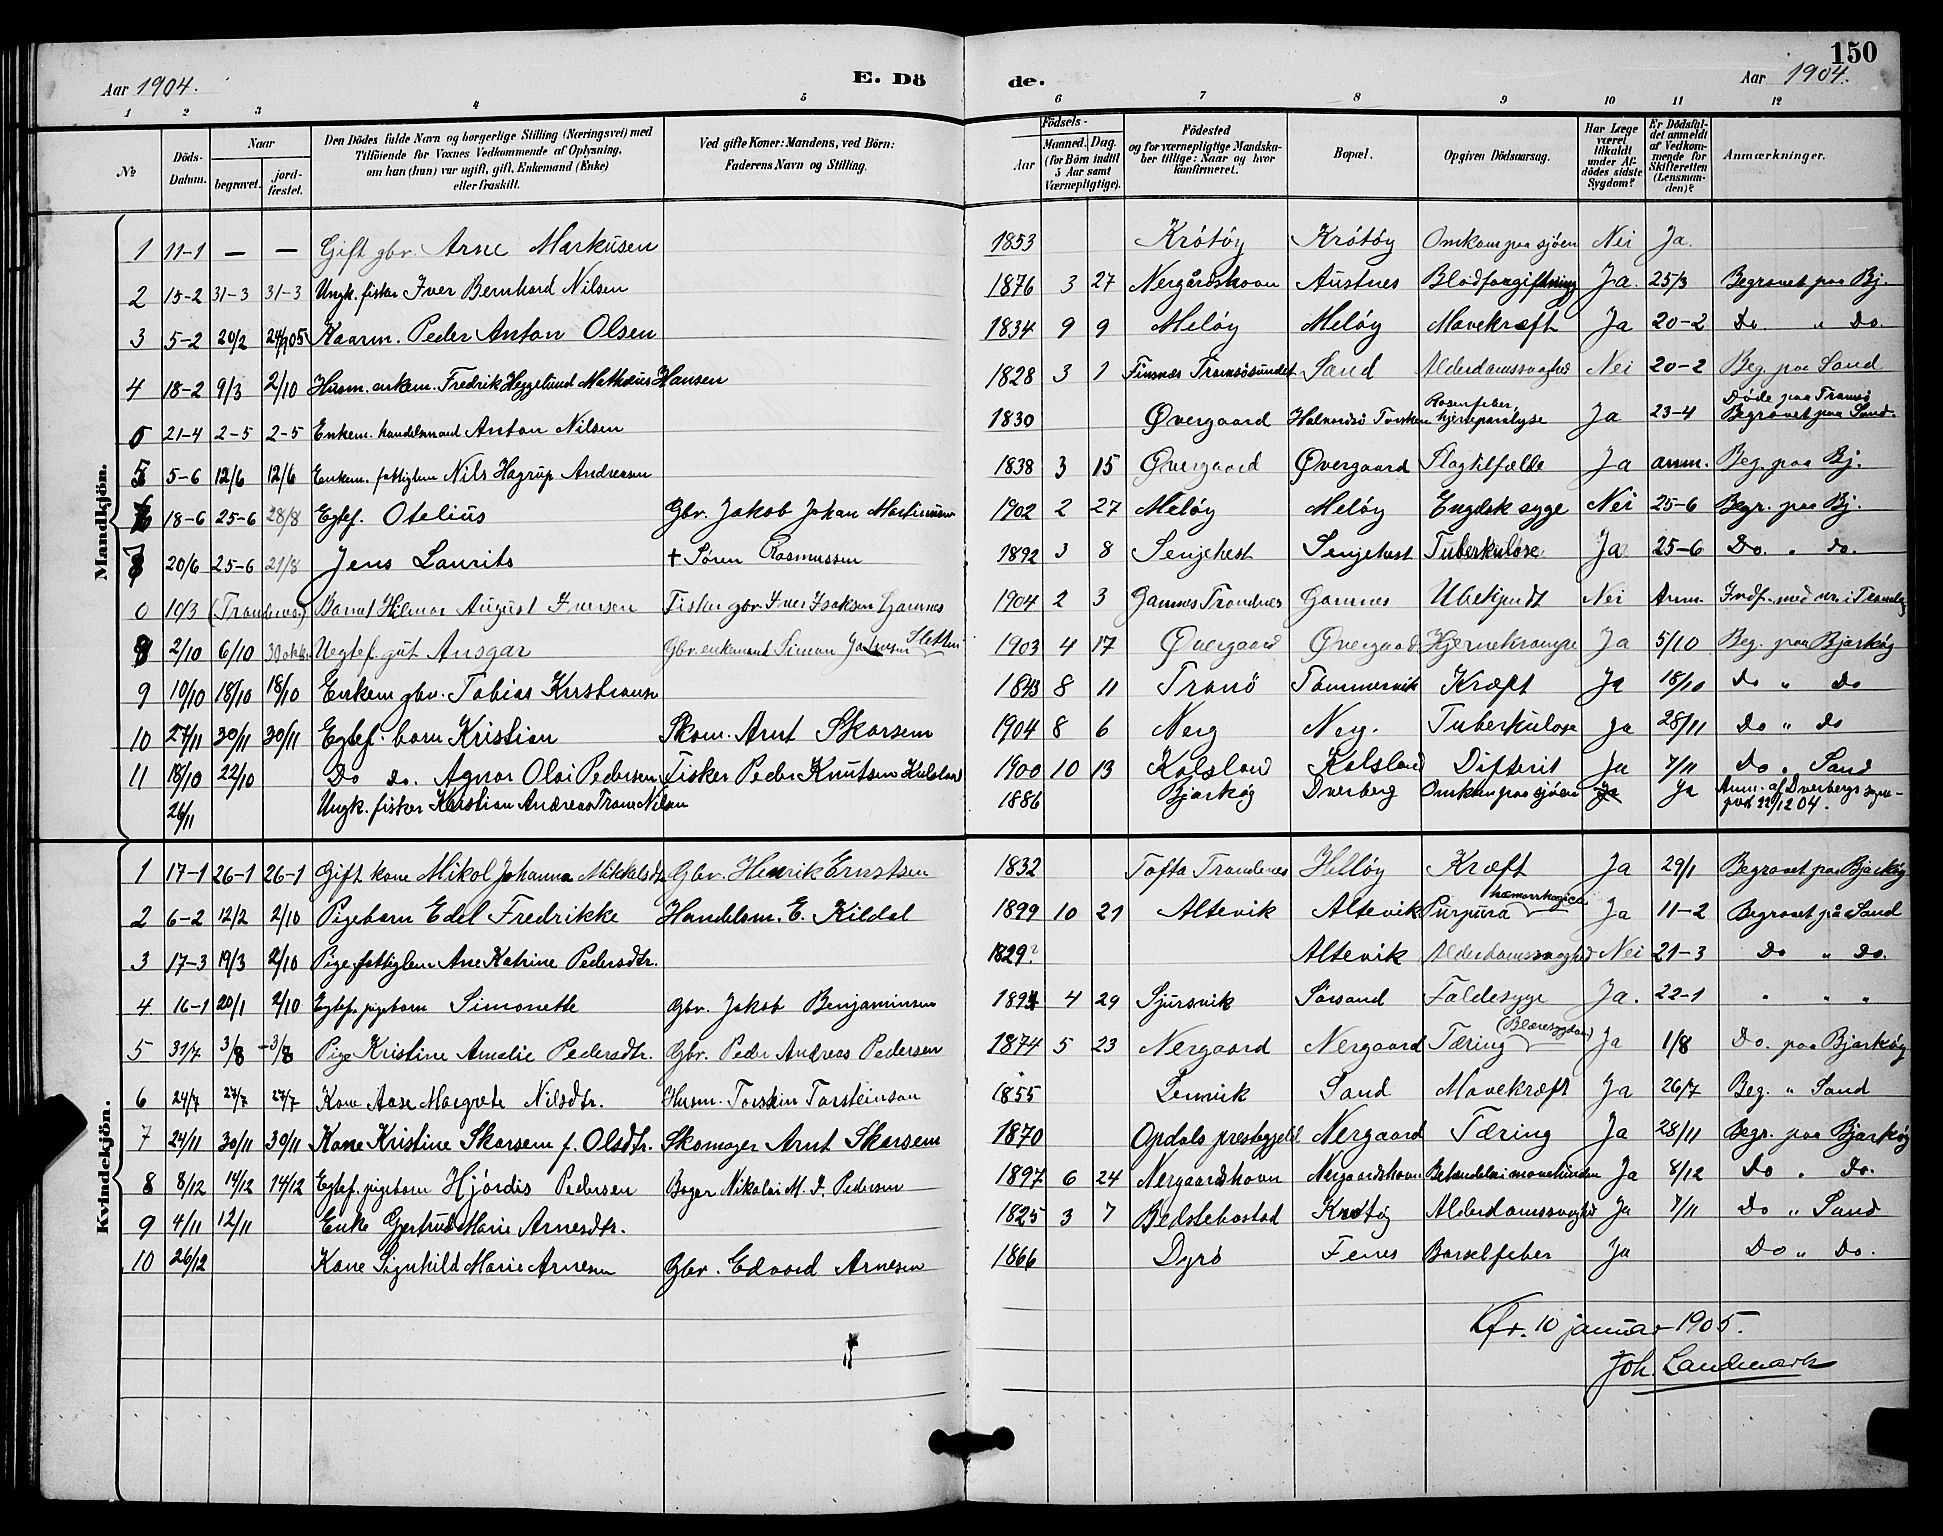 150
Aar 1904. E. Dö de. Aar 1904.
1 2 3 4 5 6 7 8 9 10 11 12
№ Döds-Datum. Naar begravet. jord-fæstet. Den Dödes fulde Navn og borgerlige Stilling (Næringsvei) med Tilföiende for Voxnes Vedkommende af Oplysning, om han (hun) var ugift, gift, Enkemand (Enke) eller fraskilt. Ved gifte Koner: Mandens, ved Börn: Faderens Navn og Stilling. Födsels- Aar Maaned. Dag. (for Börn indtil 5 Aar samt Værnepligtige). Födested og for værnepligtige Mandskaber tillige: Naar og hvor konfirmeret. Bopæl. Opgiven Dödsaarsag. Har Læge været tilkaldt under Afdödes sidste Sygdom? Er Dödsfaldet anmeldt af Vedkommende for Skifteretten (Lensmanden)? Anmærkninger.
Mandkjön.
1 11-1 — — Gift gbr. Arne Markusen 1853 Krötöy Krötöy Omkom paa sjöen Nei Ja.
2 15-2 31-3 31-3 Ungk. fisker Iver Bernhard Nilsen 1876 3 27 Nergårdshavn Austnes Blodforgiftning Ja. 25/3 Begravet paa Bj.
3 5-2 20/2 Kaarm. Peder Anton Olsen 1834 9 9 Meløy Meløy Mavekræft Ja 20-2 Do. " Do.
4 18-2 9/3 2/10 Husm. enkem. Fredrik Heggelund Mathæus Hansen 1828 3 1 Finnæs Tromsösundet Sand Alderdomssvaghed Nei 20-2 Beg. paa Sand
21-4 2-5 2-5 Enkem. handelsmand Anton Nilsen 1830 Øvergaard Halvardsö Torsken Rosenfeber, hjerteparalyse Ja 23-4 Døde paa Tromsö Begravet paa Sand.
5 5-6 12/6 12/6 Enkem. fattiglem Nils Hagrup Andreasen 1838 3 15 Øvergaard Øvergaard Slagtilfælde Ja anm. Beg. paa Bj.
18-6 25-6 28/8 Egtef. Otelius Gbr. Jakob Johan Martinusen 1902 2 27 Meløy Meløy Engelsk syge Nei 25-6 Begr. paa Bj.
20/6 25-6 21/8 Jens Laurits † Sören Rasmussen 1892 3 8 Senjehest Senjehest Tuberkulöse Ja 25-6 Do. " do.
0 10/3 (Trondenes) Barnet Hilmar August Iversen Fisker gbr. Iver Isaksen Gamnes 1904 2 3 Gamnes Trondnes Gamnes Ubekjendt Nei Anm. Indf. med nr. i
2/10 6/10 30 oktbr. Uegtef. gut Ansgar Gbr. enkemand Simon Slettli 1903 4 17 Øvergaard Øvergaard Hjernekrampe Ja 5/10 Beg. paa Bjarköy
9 10/10 18/10 18/10 Enkem gbr. Tobias Kristiansen 1843 8 11 Tranö Tömmervik Kræft Ja 18/10 Do " Do
10 27/11 30/11 30/11 Egtef. barn Kristian Skom. Arnt Skarsem 1904 8 6 Nerg Nerg. Tuberkulose Ja 28/11 Do " Do
11 18/10 22/10 Do do. Agnar Olai Pedersen Fisker Peder Knutsen Kulsland 1900 10 13 Kalsland Kalsland Difterit Ja 7/11 Do " Sand
26/11 Ungk. fisker Kristian Andreas Trane Nilsen 1886 Bjarköy Dverberg Omkom paa sjöen Ja Ja Anm. af Dverbergs sogne-
22/12 04.
Kvindekjön.
1 17-1 26-1 26-1 Gift kone Mikol Johanna Mikkelsdtr. Gbr. Henrik Ernstsen 1832 Tofta Trondenes Helløy Kræft Ja 29/1 Begravet paa Bjarköy
2 6-2 12/2 2/10 Pigebarn Edel Fredrikke Handelsm. E. Kildal 1899 10 21 Altevik Altevik Purpura hæmorrhagica Ja 11-2 Begravet på Sand
3 17-3 19/3 2/10 Pige, fattiglem Ane Katrine Pedersdtr. 1829? Altevik Alderdomssvaghed Nei 21-3 Do " Do.
4 16-1 20/1 2/10 Egtef. pigebarn Simonette Gbr. Jakob Benjaminsen 1894 4 29 Sjursvik Sörsand Faldesyge Ja. 22-1 " " "
5 31/7 3/8 -3/8 Pige Kristine Amalie Pedersdtr. Gbr. Peder Andreas Pedersen 1874 5 23 Nergaard Nergaard Tæring (Blæresygdom) Ja 1/8 Do. paa Bjarköy
6 24/7 27/7 27/7 Kone Aase Margrete Nilsdtr. Husm. Torstein Torsteinsen 1855 Lenvik Sand Mavekræft Ja 26/7 Beg. " Sand
7 24/11 30/11 30/11 Kone Kristine Skarsem f. Olsdtr. Skomager Arnt Skarsem 1870 Opdals prestegjeld Nergaard Tæring Ja 28/11 Begr. paa Bjarköy
8 8/12 14/12 14/12 Egtef. pigebarn Hjördis Pedersen Bager Nikolai M. J. Pedersen 1897 6 24 Nergaardshavn Nergaardshavn Ja 8/12 Do " Do.
9 4/11 12/11 Enke Gjertrud Marie Arnesdtr. 1825 3 7 Krøtöy Alderdomssvaghed Ja 7/11 Do " Sand
10 26/12 Kone Signhild Marie Arnesen Gbr. Edvard Arnesen 1866 Dyrö Fenes Barselfeber Ja Do " Do.
Kfr. 10 januar 1905.
Joh. Landmark